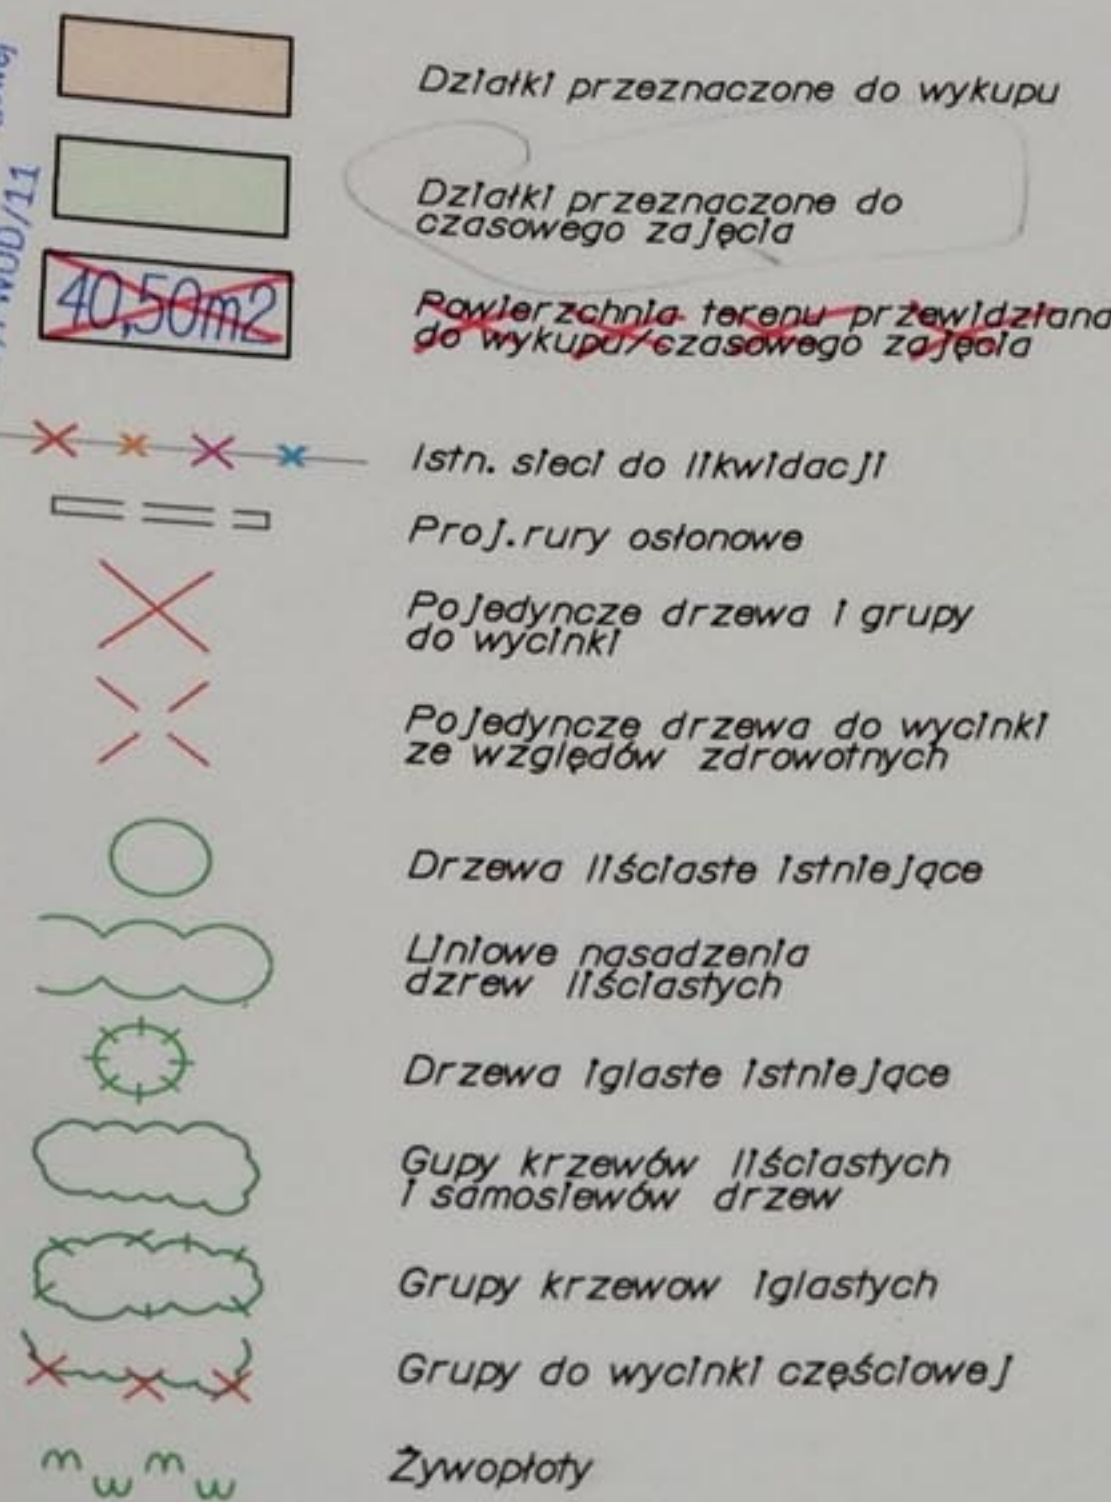 Działki przeznaczone do wykupu
Działki przeznaczone do
czasowego zajęcia
WOD/11
40,50m2
Powierzchnia terenu przewidziana
do wykupu/czasowego zajęcia
Istn. sieci do likwidacji
Proj.rury osłonowe
Pojedyncze drzewa i grupy
do wycinki
Pojedyncze drzewa do wycinki
ze względów zdrowotnych
Drzewa liściaste istniejące
Liniowe nasadzenia
dzrew liściastych
Drzewa iglaste istniejące
Gupy krzewów liściastych
i samosiewów drzew
Grupy krzewow iglastych
Grupy do wycinki częściowej
Żywopłoty